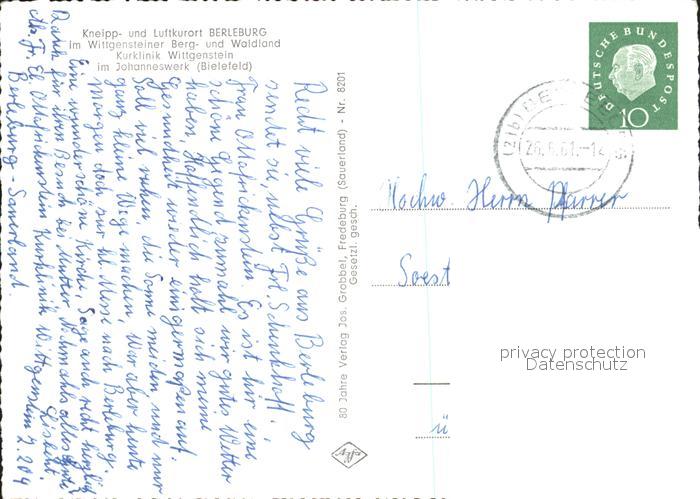 Kneipp- und Luftkurort BERLEBURG
im Wittgensteiner Berg- und Waldland
Kurklinik Wittgenstein
im Johanneswerk (Bielefeld)
DEUTSCHE BUNDESPOST
10
(21b)
26.6.61.-12
Hochw. Herrn Pfarrer
Soest
ü
privacy protection
Datenschutz
80 Jahre Verlag Jos. Grobbel, Fredeburg (Sauerland) - Nr. 8201
Gesetzl. gesch.
Recht viele Grüße aus Berleburg
sendet Sie nebst Frl.
Frau Es ist hier eine
schöne Gegend zumahl wir gutes Wetter
haben. Hoffendlich hält sich meine
Gesundheit wieder einigermaßen auf.
Soll viel ruhen, die Sonne meiden und nur
ganz kleine Wege machen, war aber heute
morgen doch zur hl. Messe nach Berleburg.
Eine wunderschöne Kirche, Sage auch recht herzlich
Dank für ihren Besuch bei Mutter. Nochmahls alles Gute
Abs. Fr. El. Kurklinik Wittgenstein Z. 204
Berleburg - Sauerland.